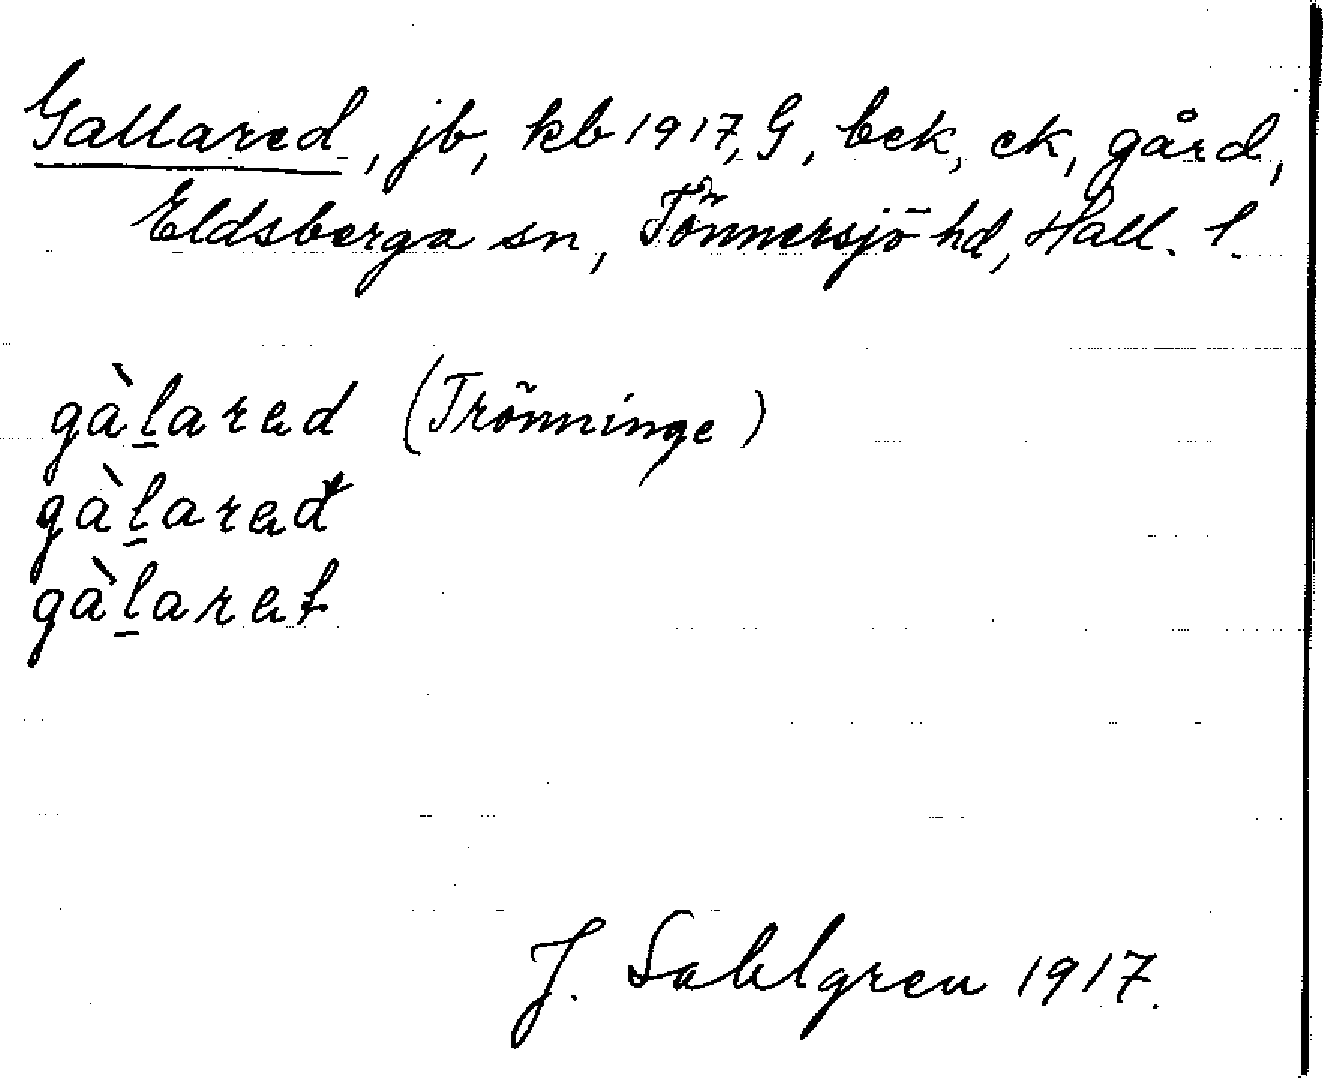 Gallared, jb, kb 1917, G, bek, ek, gård,
Eldsberga sn, Tönnersjö hd, Hall. l.
gàl̲ared (Trönninge)
gàl̲ared
gàl̲aret
J. Sahlgren 1917.